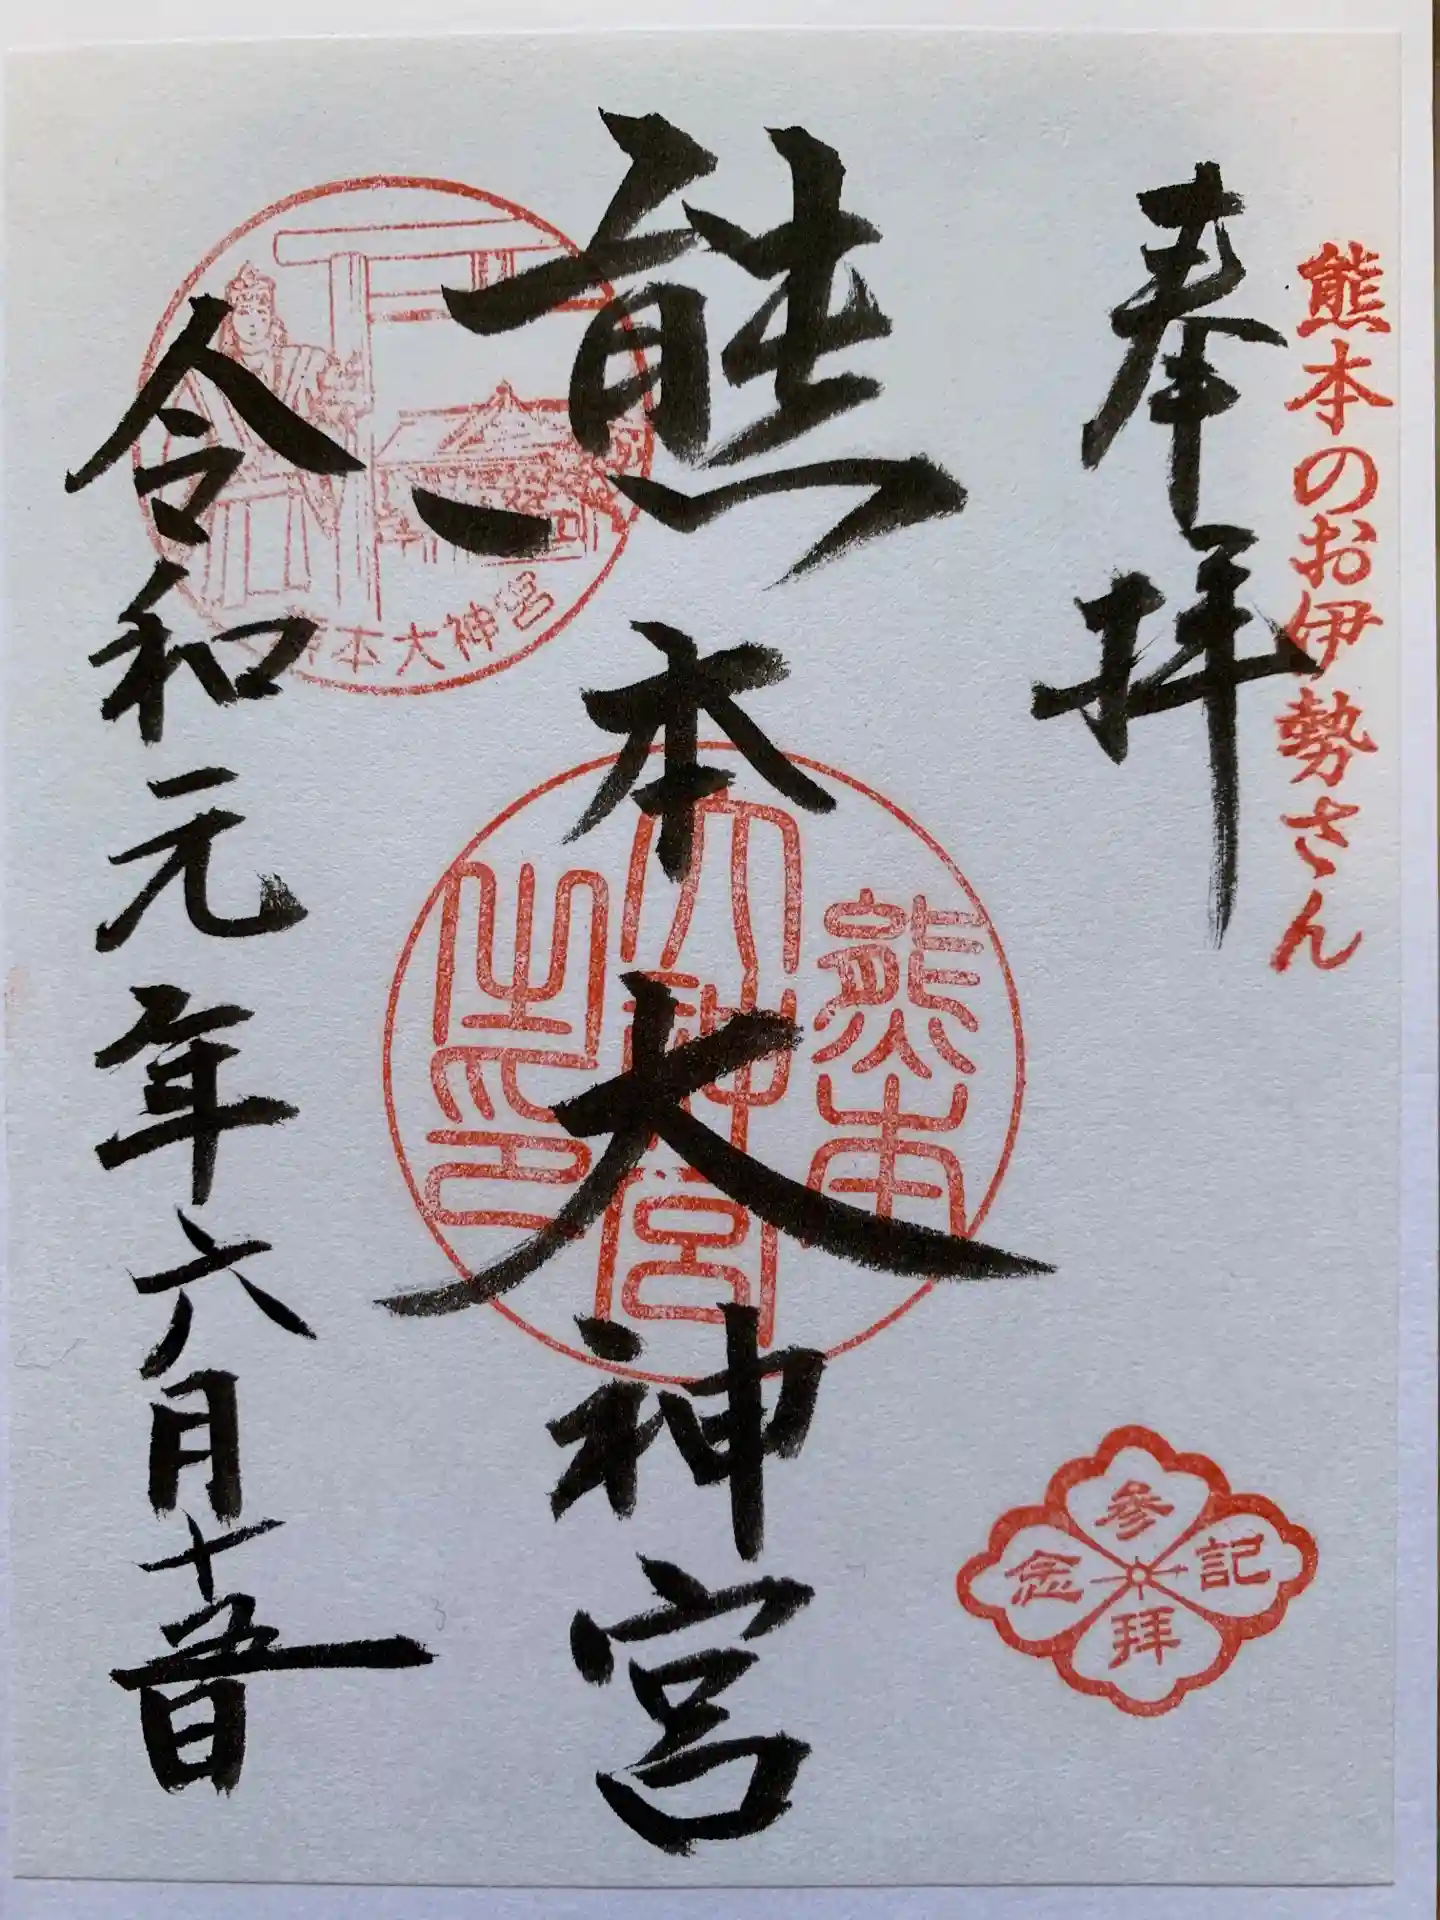 熊本のお伊勢さん
奉拝
熊本大神宮
熊本
大神宮
之印
熊本大神宮
令和元年六月十五日
参拝
記念